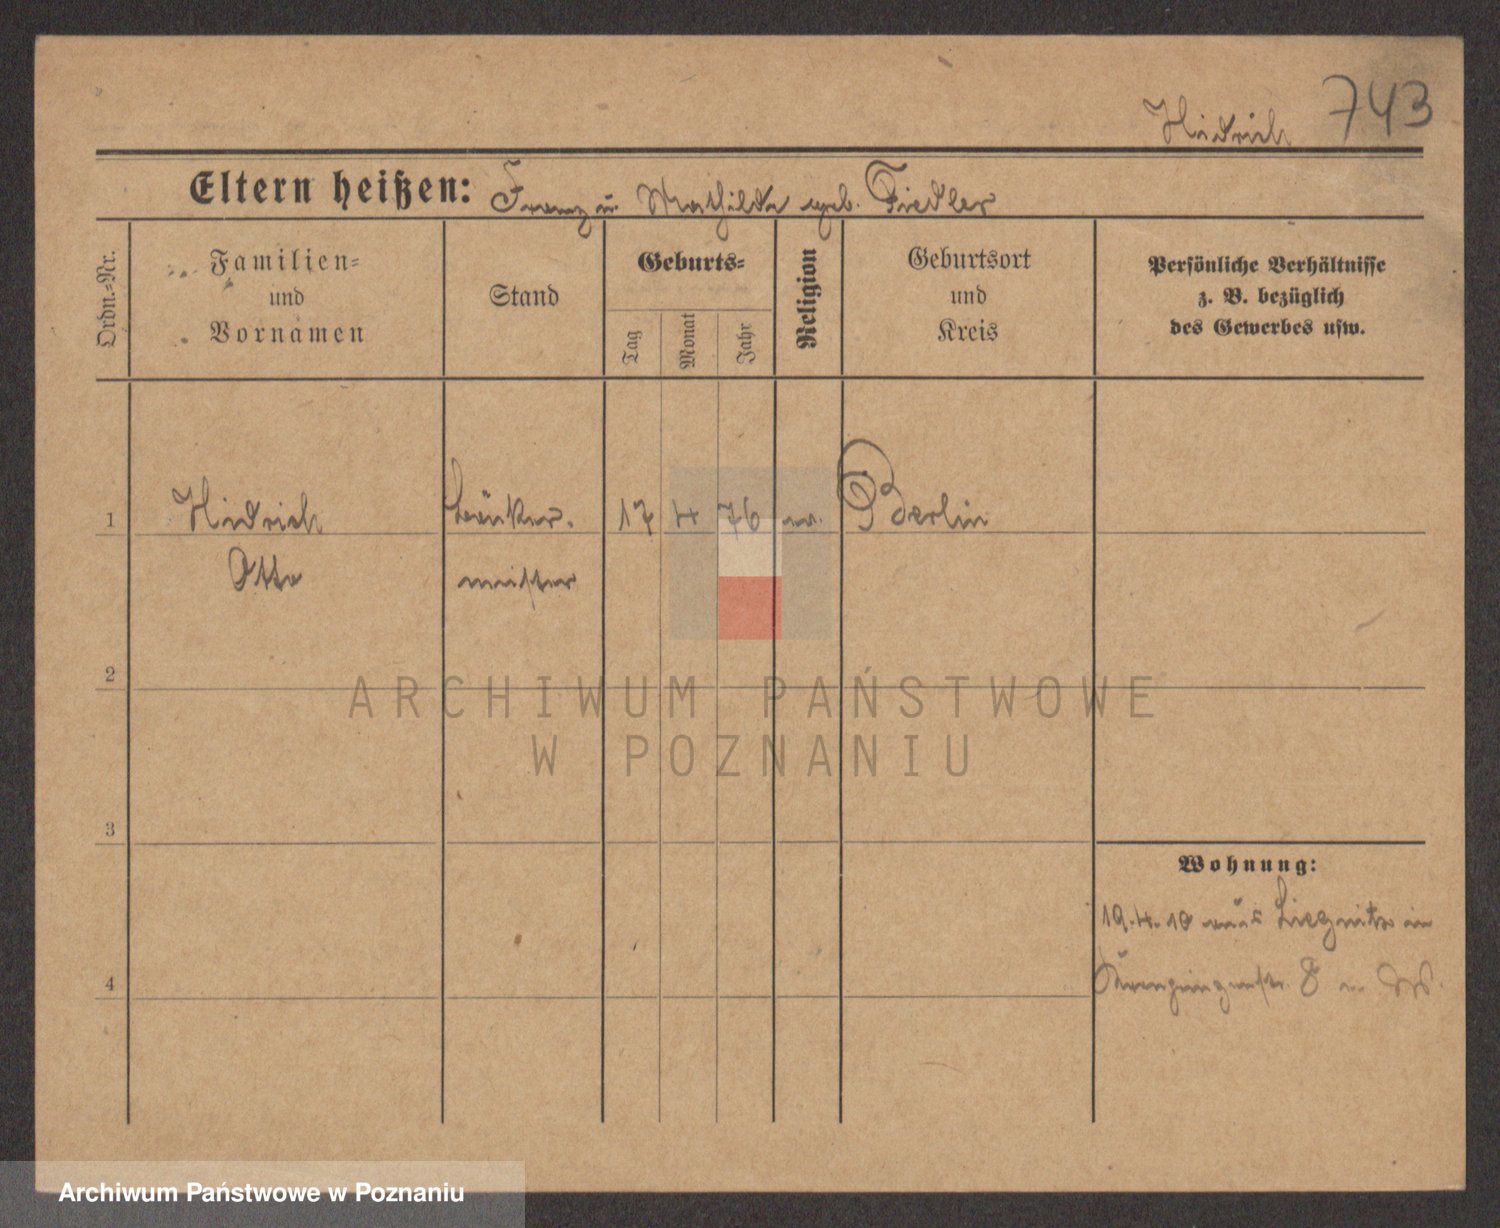 743
Hidrich
Eltern heißen: Franz u. Mathilde geb. Fiedler
Ordn.=Nr.
Familien=
und
Vornamen
Stand
Geburts=
Tag
Monat
Jahr
Religion
Geburtsort
und
Kreis
Persönliche Verhältnisse
z. B. bezüglich
des Gewerbes usw.
1 Hidrich 17 4 76 ev. Berlin
Otto meister
2
ARCHIWUM PAŃSTWOWE
W POZNANIU
3
Wohnung:
19.4.10 aus Liegnitz in
4
8
Archiwum Państwowe w Poznaniu